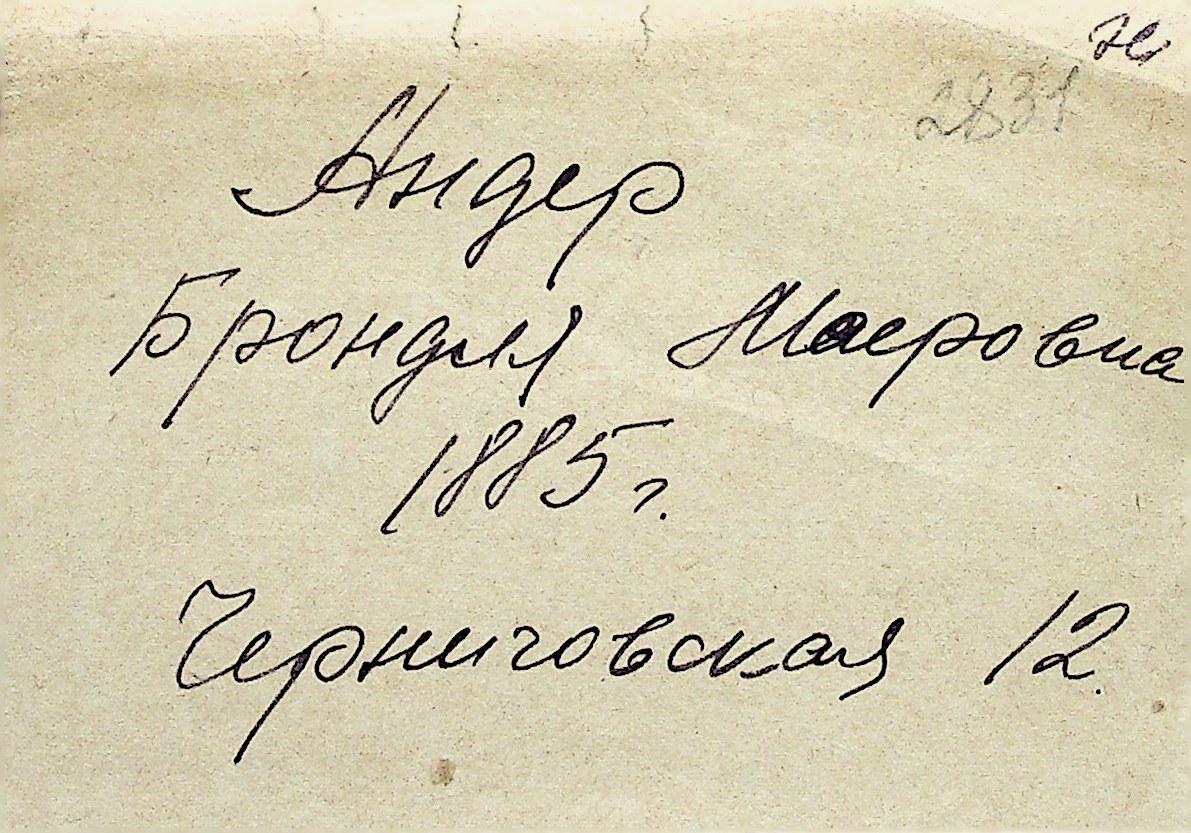 2831
Андер
Брондля Маеровна
1885 г.
Черниговская 12.